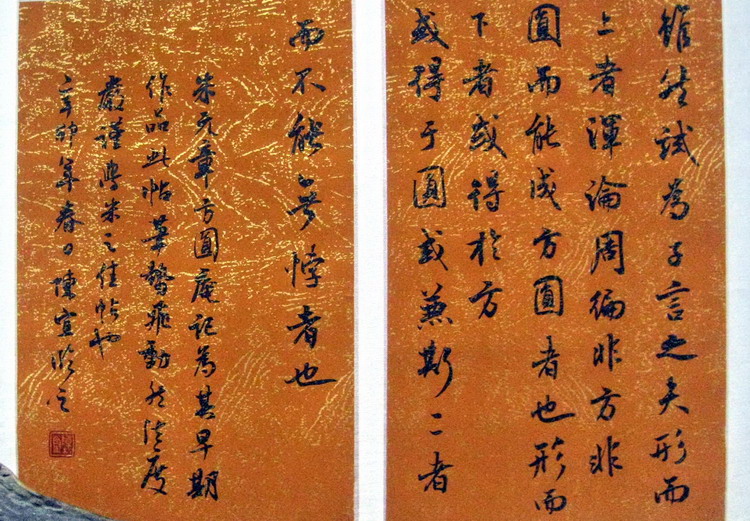 雖然試為子言之夫形而
上者渾淪周徧非方非
圓而能成方圓者也形而
下者或得於方
或得于圓或兼斯二者
而不能無悖者也
米元章方圓庵記為其早期
作品此帖筆勢飛動然法度
嚴謹為米之佳帖也
辛卯年春日陳宣